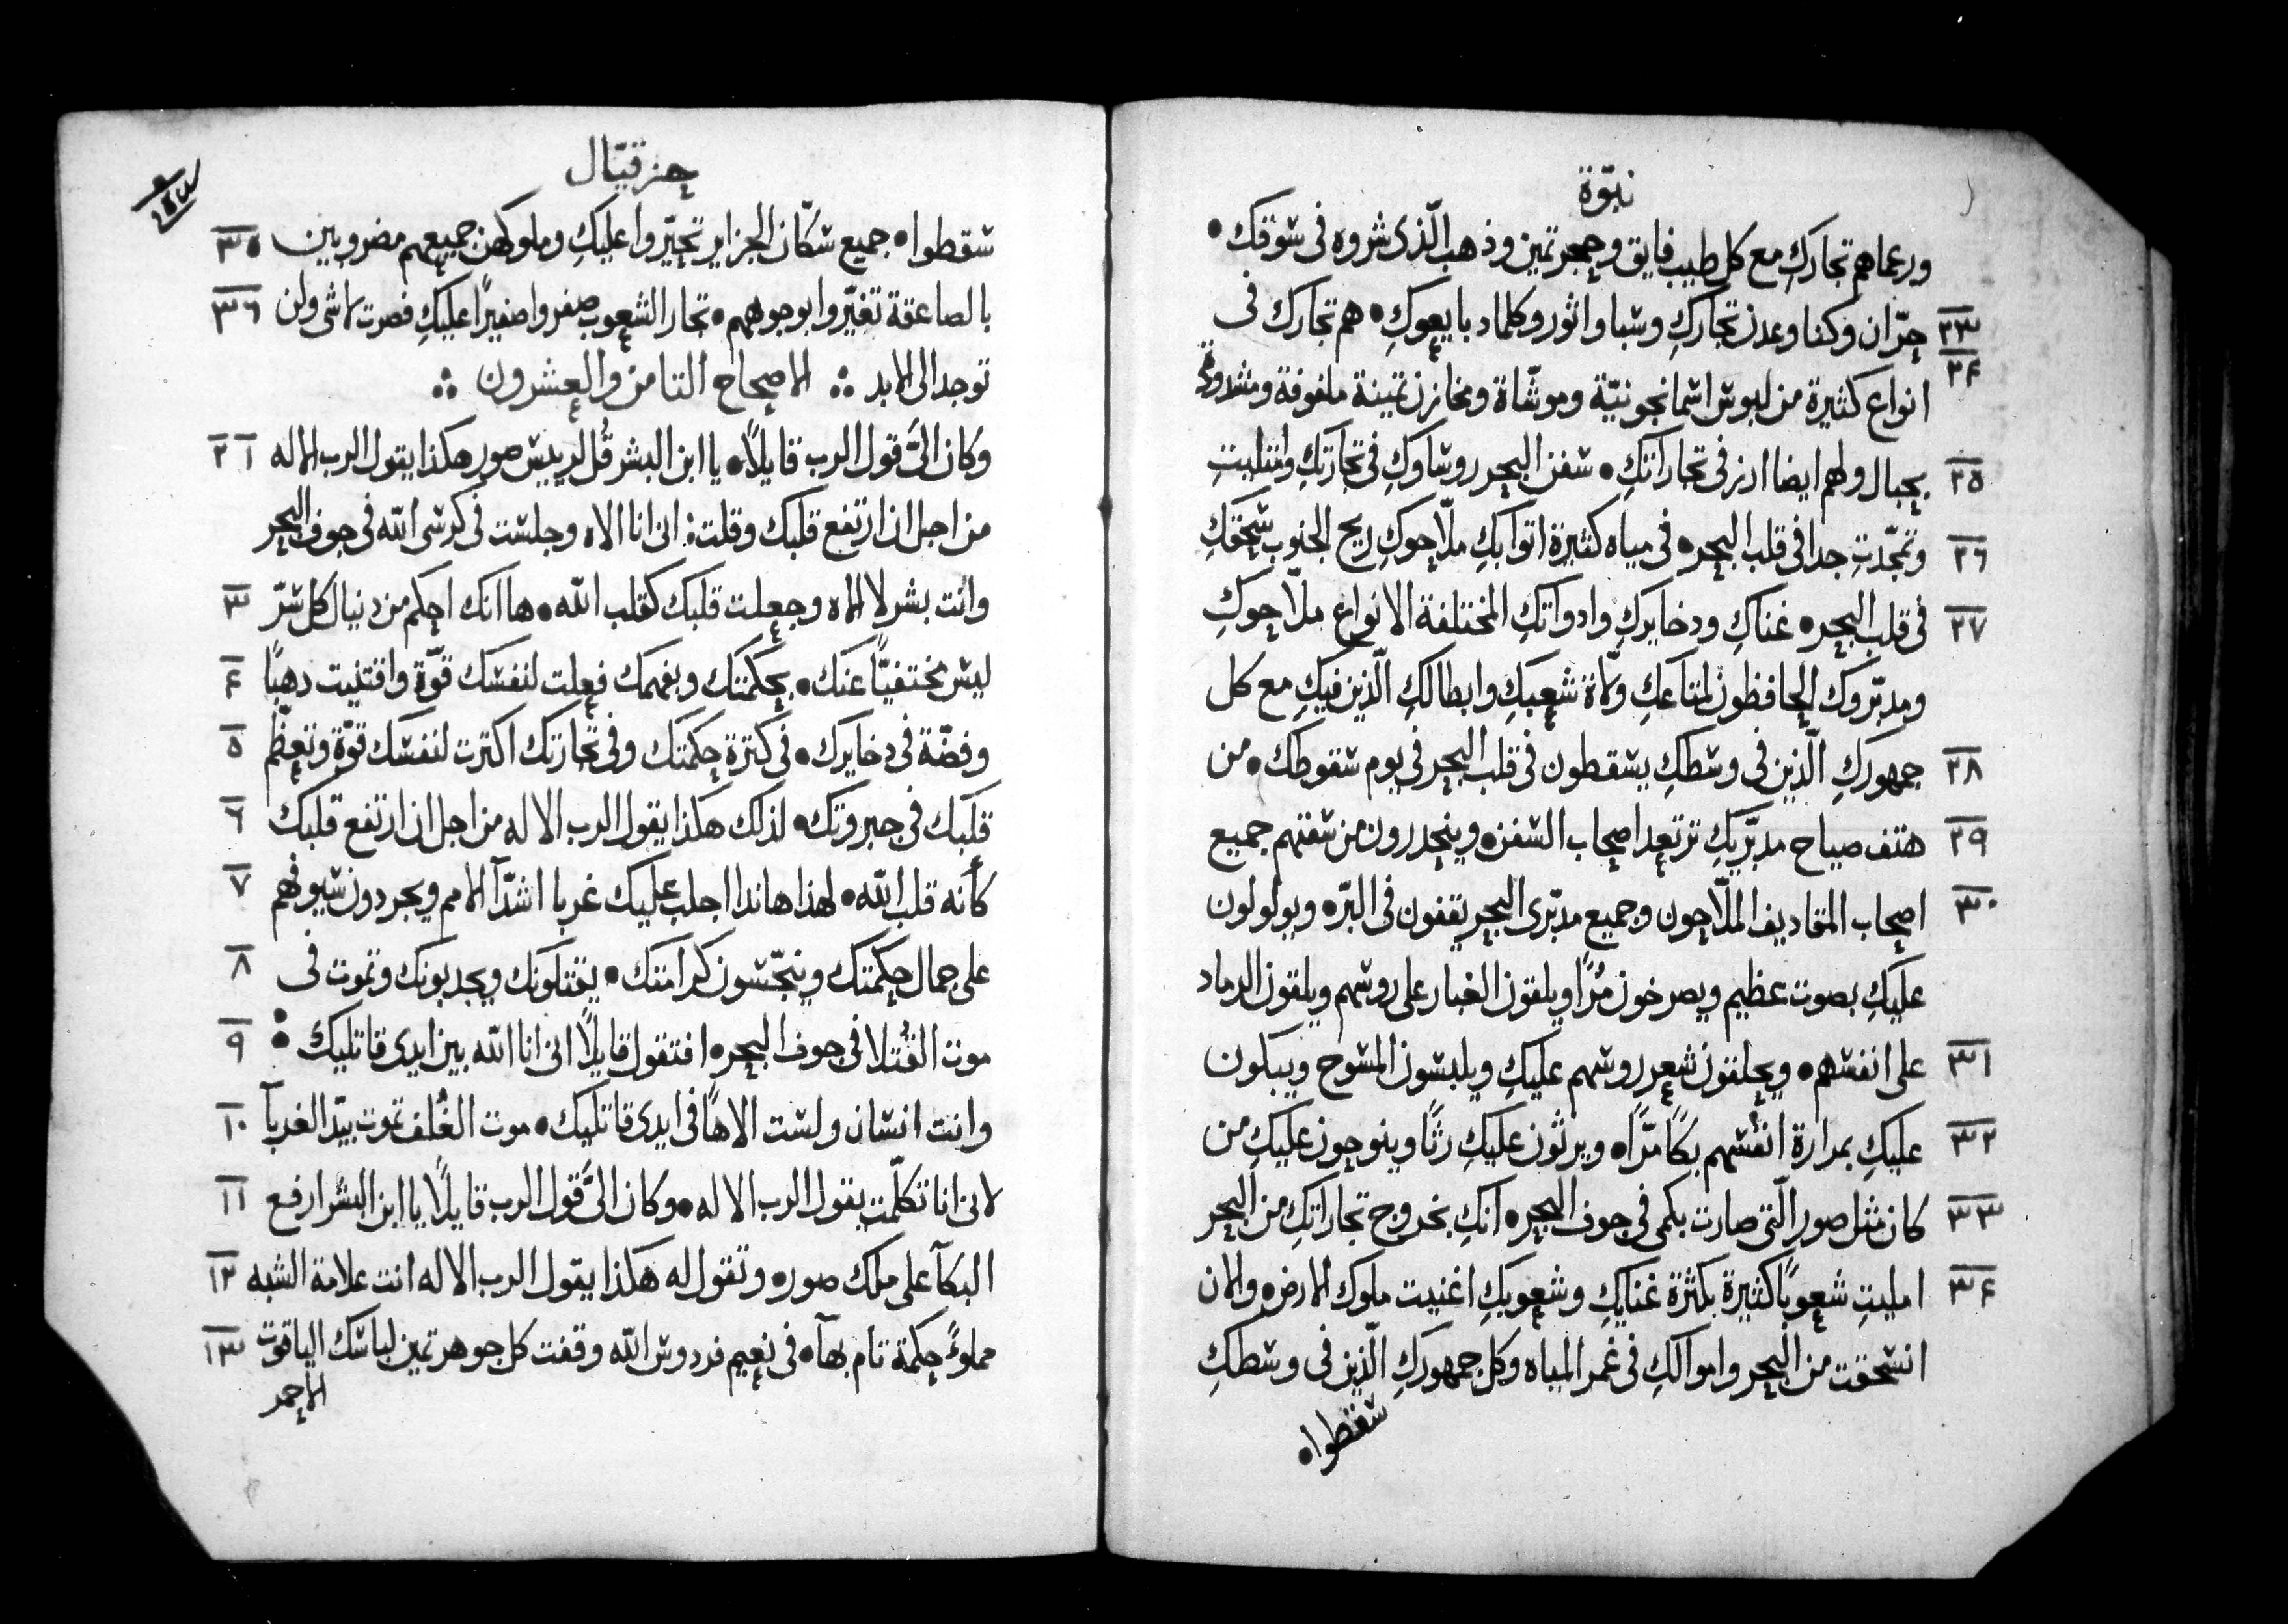 نبوّة
ورعماهم تجاركِ مع كل طيب فايق وحجر تمين وذهب الّذى شروه فى شوقك •
٢٣ حرّان وكنا وعدن تجاركِ وشبا واثور وكلماد بايعوكِ • هم تجارك فى
٢٤ انواع كثيرة من لبوش اشمانجونيّة وموشّاة ومخازن تمينة ملفوفة ومشدودة
٢٥ بحبال ولهم ايضا ارز فى تجاراتكِ • شفن البحر روشاوكِ فى تجارتكِ وامتليتِ
٢٦ وتمجّدتِ جدا فى قلب البحر • فى مياه كثيرة اتوا بكِ ملّاحوكِ ريح الجنوب شحقكِ
٢٧ فى قلب البحر • غناكِ ودخايركِ وادواتكِ المختلفة الانواع ملّاحوكِ
ومدبّروك الحافظون لمتاعكِ ولاة شعبكِ وابطالكِ الّذين فيكِ مع كل
٢٨ جمهوركِ الّذين فى وشطكِ يشقطون فى قلب البحر فى يوم شقوطك • من
٢٩ هتف صياح مدبّريكِ ترتعد اصحاب الشفن • وينحدرون من شفنهم جميع
٣٠ اصحاب المقاديف الملّاحون وجميع مدبّرى البحر يقفون فى البرّ • ويولولون
عليكِ بصوت عظيم ويصرخون مُرًا ويلقون الغبار على روشهم ويلقون الرماد
٣١ على انفشهم • ويحلقون شعر روشهم عليكِ ويلبشون المشوح ويبكون
٣٢ عليكِ بمرارة انفشهم بكًا مرًّا • ويرثون عليكِ رثًا وينوحون عليكِ من
٣٣ كان مثل صور الّتى صارت بكمى فى جوف البحر • انكِ بخروج تجاراتكِ من البحر
٣٤ امليتِ شعوبًا كثيرة بكثرة غنايكِ وشعوبكِ اغنيت ملوك الارض • والان
انشحقت من البحر واموالكِ فى غمر المياه وكل جمهوركِ الّذين فى وشطكِ
شقطوا •
حزقيّال
شقطوا • جميع شكّان الجزاير تحيّروا عليكِ وملوكهن جميعهم مضروبين ٣٥
بالصاعقة تغيّروا بوجوههم • تجار الشعوب صفروا صفيرًا عليكِ فصرت لاشى ولن ٣٦
توجد الى الابد ∴ الاصحاح التامن والعشرون ∴
وكان الىَّ قول الرب قايلًا • يا ابن البشر قُل لرييش صور هكذا يقول الرب الاله ١ ٢
من اجل ان ارتفع قلبك وقلت: انى انا الاه وجلشت فى كرشى اللّه فى جوف البحر
وانت بشر لا الاه وجعلت قلبك كقلب اللّه • ها انك احكم من دنيال كل شرّ ٣
ليش مختفيًّا عنك • بحكمتك وبفهمك فعلت لنفشك قوّة واقتنيت دهبًا ٤
وفضّة فى دخايرك • فى كترة حكمتك وفى تجارتك اكترت لنفشك قوّة وتعظّم ٥
قلبك فى جبروتك • لذلك هكذا يقول الرب الاله من اجل ان ارتفع قلبك ٦
كأنه قلب اللّه • لهذا هاندا اجلب عليك غربا اشدّآ الامم ويجردون شيوفهم ٧
على جمال حكمتك وينجّشون كرامتك • يقتلونك ويجدبونك وتموت فى ٨
موت القُتلا فى جوف البحر • افتقول قايلًا انى انا اللّه بين ايدى قاتليك • ٩
وانت انشان ولشت الاهًا فى ايدى قاتليك • موت الغُلف تموت بيّد الغربآ ١٠
لانى انا تكلّمت يقول الرب الاله • وكان الىَّ قول الرب قايلًا يا ابن البشر ارفع ١١
البكآ على ملك صور • وتقول له هكذا يقول الرب الاله انت علامة الشبه ١٢
مملوءً حكمة تام بهآ • فى نعيم فردوش اللّه وقفت كل جوهر تمين لباشك الياقوت ١٣
الاحمر